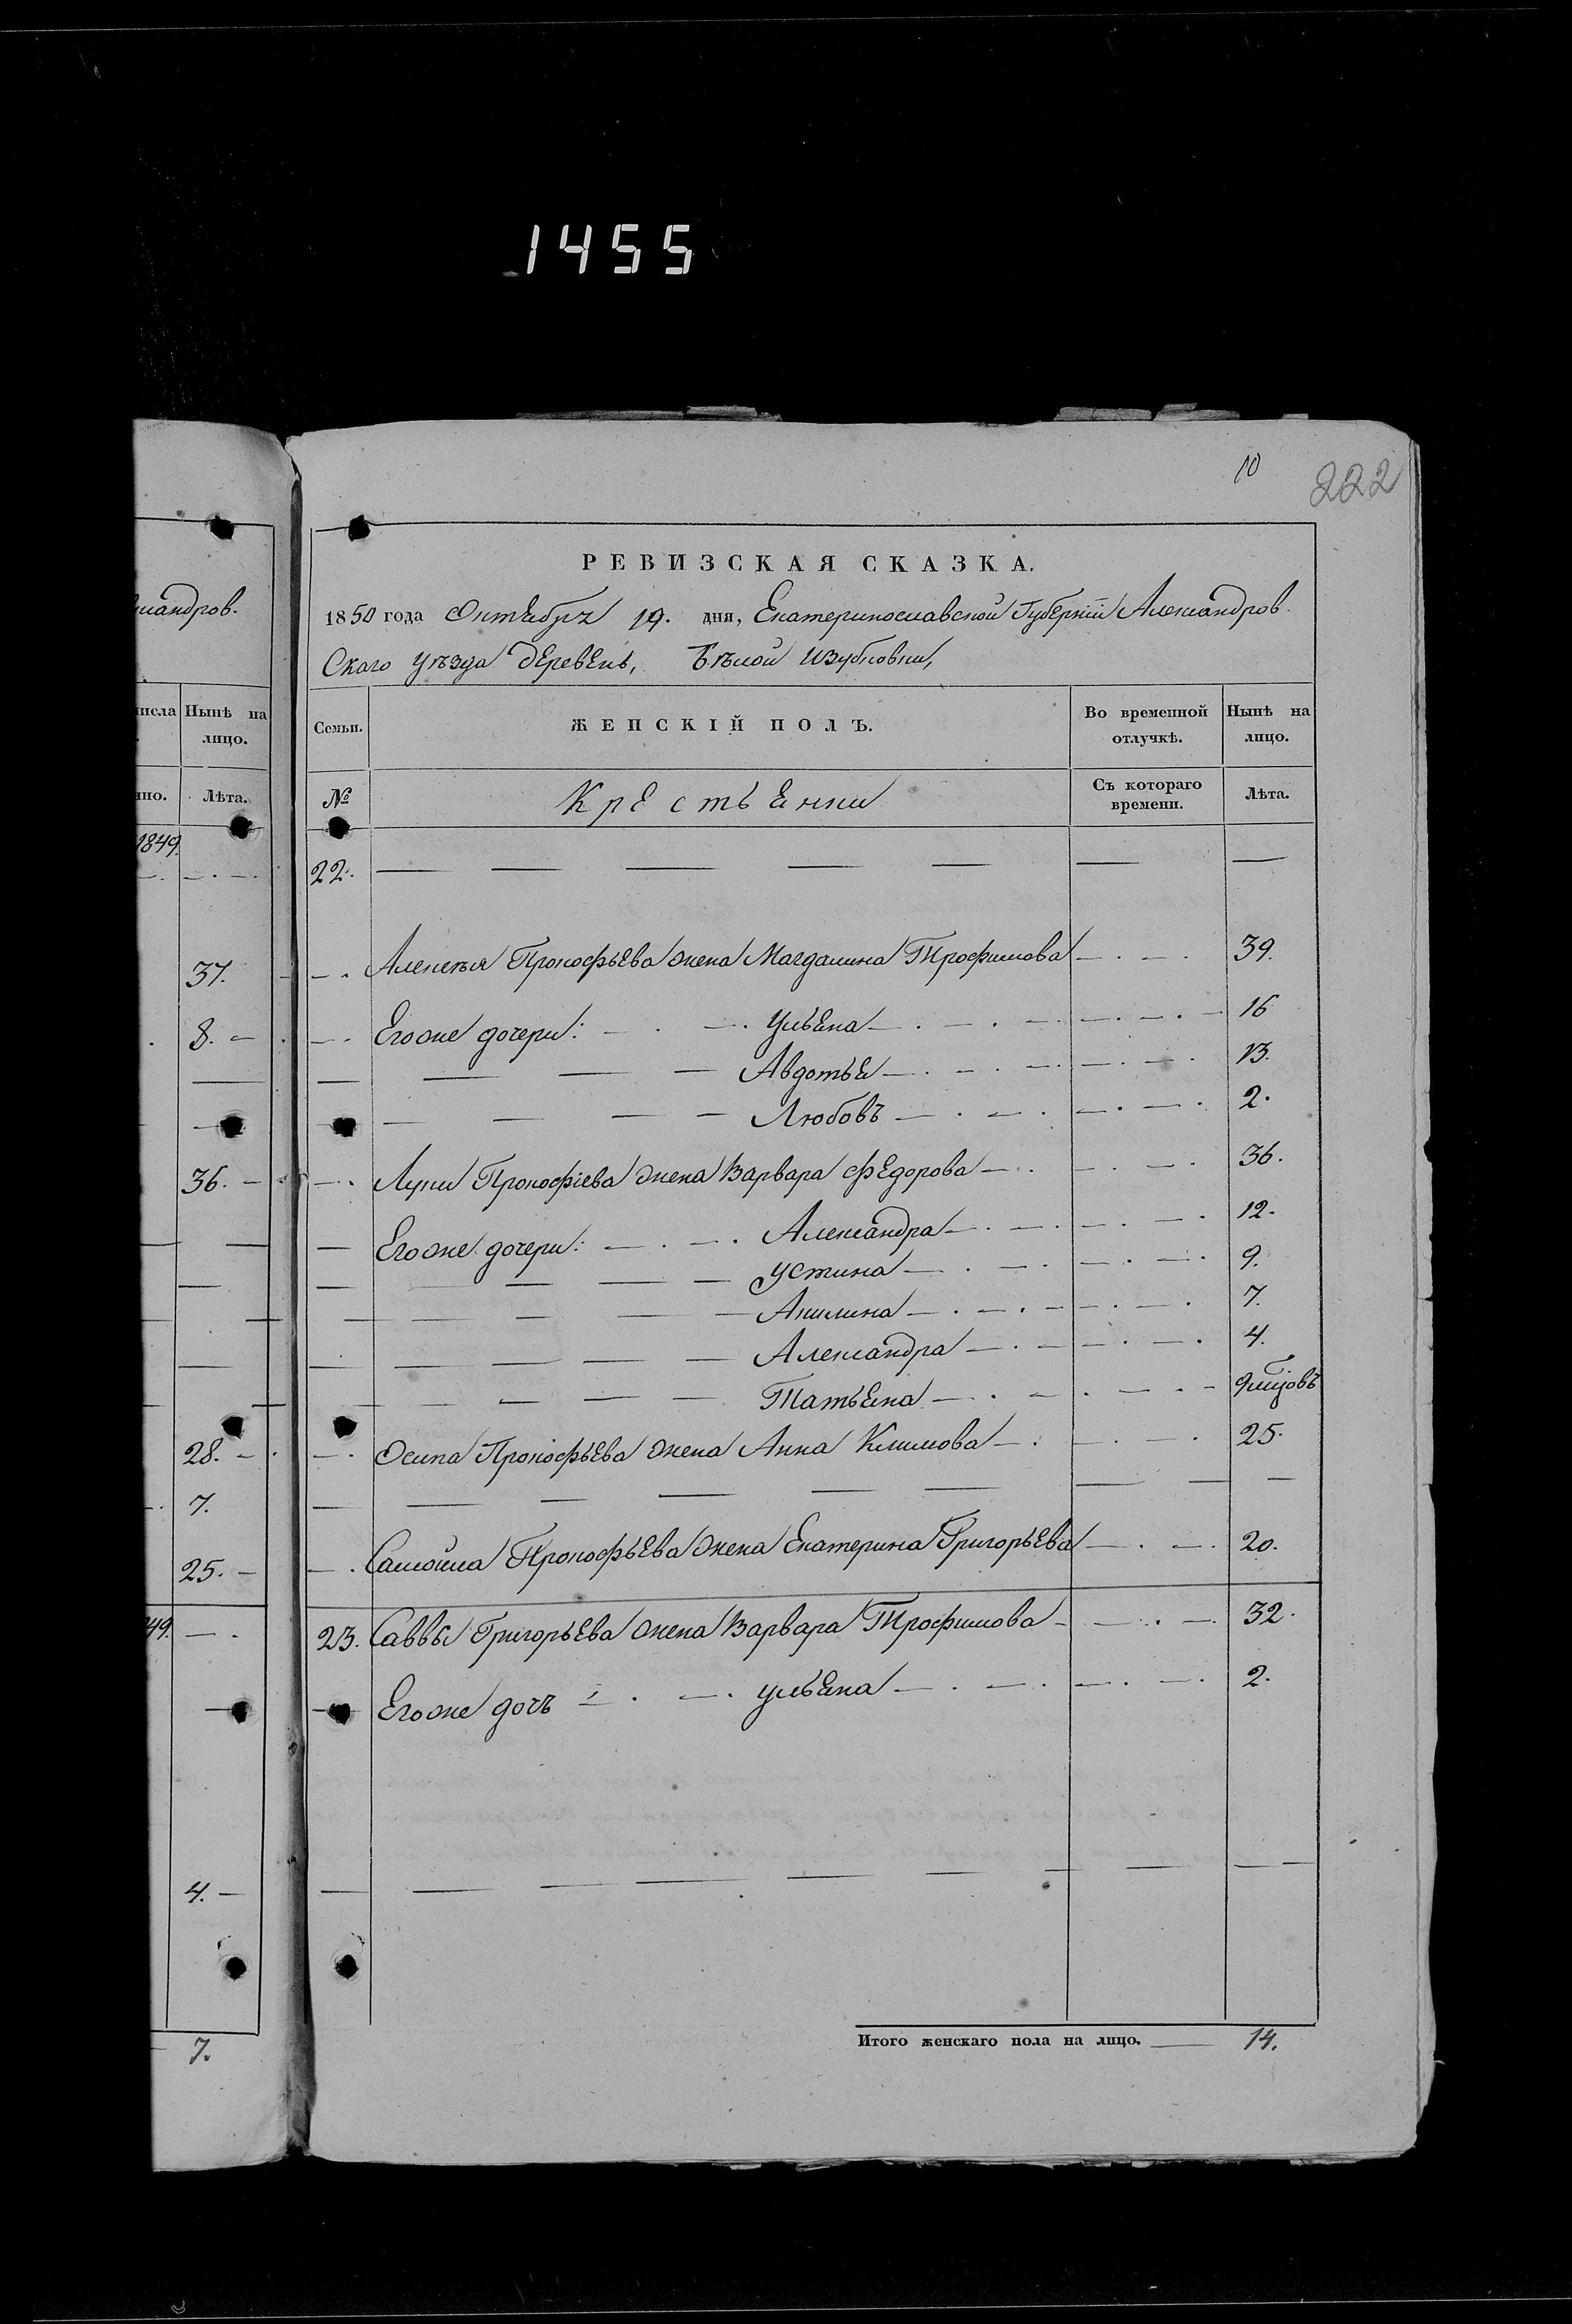 1455
10
222
иандров.
числа
Нынѣ на лицо.
нно.
Лѣта.
1849.
37.
8.
36.
28.
7.
25.
49.
4.
7.
РЕВИЗСКАЯ СКАЗКА.
1850 года Октября 19. дня, Екатеринославской Губерніи Александров
Скаго уѣзда деревень,
Семьи.
ЖЕНСКІЙ ПОЛЪ.
Во временной отлучкѣ.
Нынѣ на лицо.
№
Крестьянки
Съ котораго времени.
Лѣта.
22.
Алексѣя Прокофьева жена Магдалина Трофимова 39.
Егоже дочери: Ульяна 16
Авдотья 13.
Любовъ 2.
Луки Прокофіева жена Варвара Федорова 36.
Егоже дочери: Александра 12.
Устина 9.
Акилина 7.
Александра 4.
Татьяна 9 мцовъ
Осипа Прокофьева жена Анна Климова 25.
Самойла Прокофьева жена Екатерина Григорьева 20.
23. Саввы Григорьева жена Варвара Трофимова 32.
Егоже дочъ ульяна 2.
Итого женскаго пола на лицо. 14.